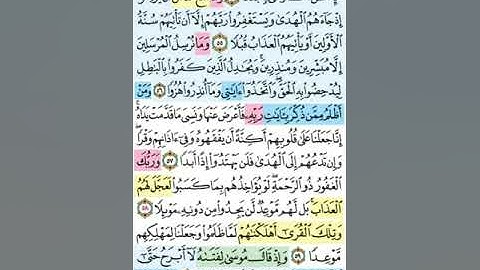 إِذْ جَآءَهُمُ ٱلْهُدَىٰ وَيَسْتَغْفِرُوا۟ رَبَّهُمْ إِلَّآ أَن تَأْتِيَهُمْ سُنَّةُ
ٱلْأَوَّلِينَ أَوْ يَأْتِيَهُمُ ٱلْعَذَابُ قُبُلًا ٥٥ وَمَا نُرْسِلُ ٱلْمُرْسَلِينَ
إِلَّا مُبَشِّرِينَ وَمُنذِرِينَ ۚ وَيُجَٰدِلُ ٱلَّذِينَ كَفَرُوا۟ بِٱلْبَٰطِلِ
لِيُدْحِضُوا۟ بِهِ ٱلْحَقَّ ۖ وَٱتَّخَذُوٓا۟ ءَايَٰتِى وَمَآ أُنذِرُوا۟ هُزُوًا ٥٦ وَمَنْ
أَظْلَمُ مِمَّن ذُكِّرَ بِـَٔايَٰتِ رَبِّهِۦ فَأَعْرَضَ عَنْهَا وَنَسِىَ مَا قَدَّمَتْ يَدَاهُ ۚ
إِنَّا جَعَلْنَا عَلَىٰ قُلُوبِهِمْ أَكِنَّةً أَن يَفْقَهُوهُ وَفِىٓ ءَاذَانِهِمْ وَقْرًا ۖ
وَإِن تَدْعُهُمْ إِلَى ٱلْهُدَىٰ فَلَن يَهْتَدُوٓا۟ إِذًا أَبَدًا ٥٧ وَرَبُّكَ
ٱلْغَفُورُ ذُو ٱلرَّحْمَةِ ۖ لَوْ يُؤَاخِذُهُم بِمَا كَسَبُوا۟ لَعَجَّلَ لَهُمُ
ٱلْعَذَابَ ۚ بَل لَّهُم مَّوْعِدٌ لَّن يَجِدُوا۟ مِن دُونِهِۦ مَوْئِلًا ٥٨
وَتِلْكَ ٱلْقُرَىٰٓ أَهْلَكْنَٰهُمْ لَمَّا ظَلَمُوا۟ وَجَعَلْنَا لِمَهْلِكِهِم
مَّوْعِدًا ٥٩ وَإِذْ قَالَ مُوسَىٰ لِفَتَىٰهُ لَآ أَبْرَحُ حَتَّىٰٓ